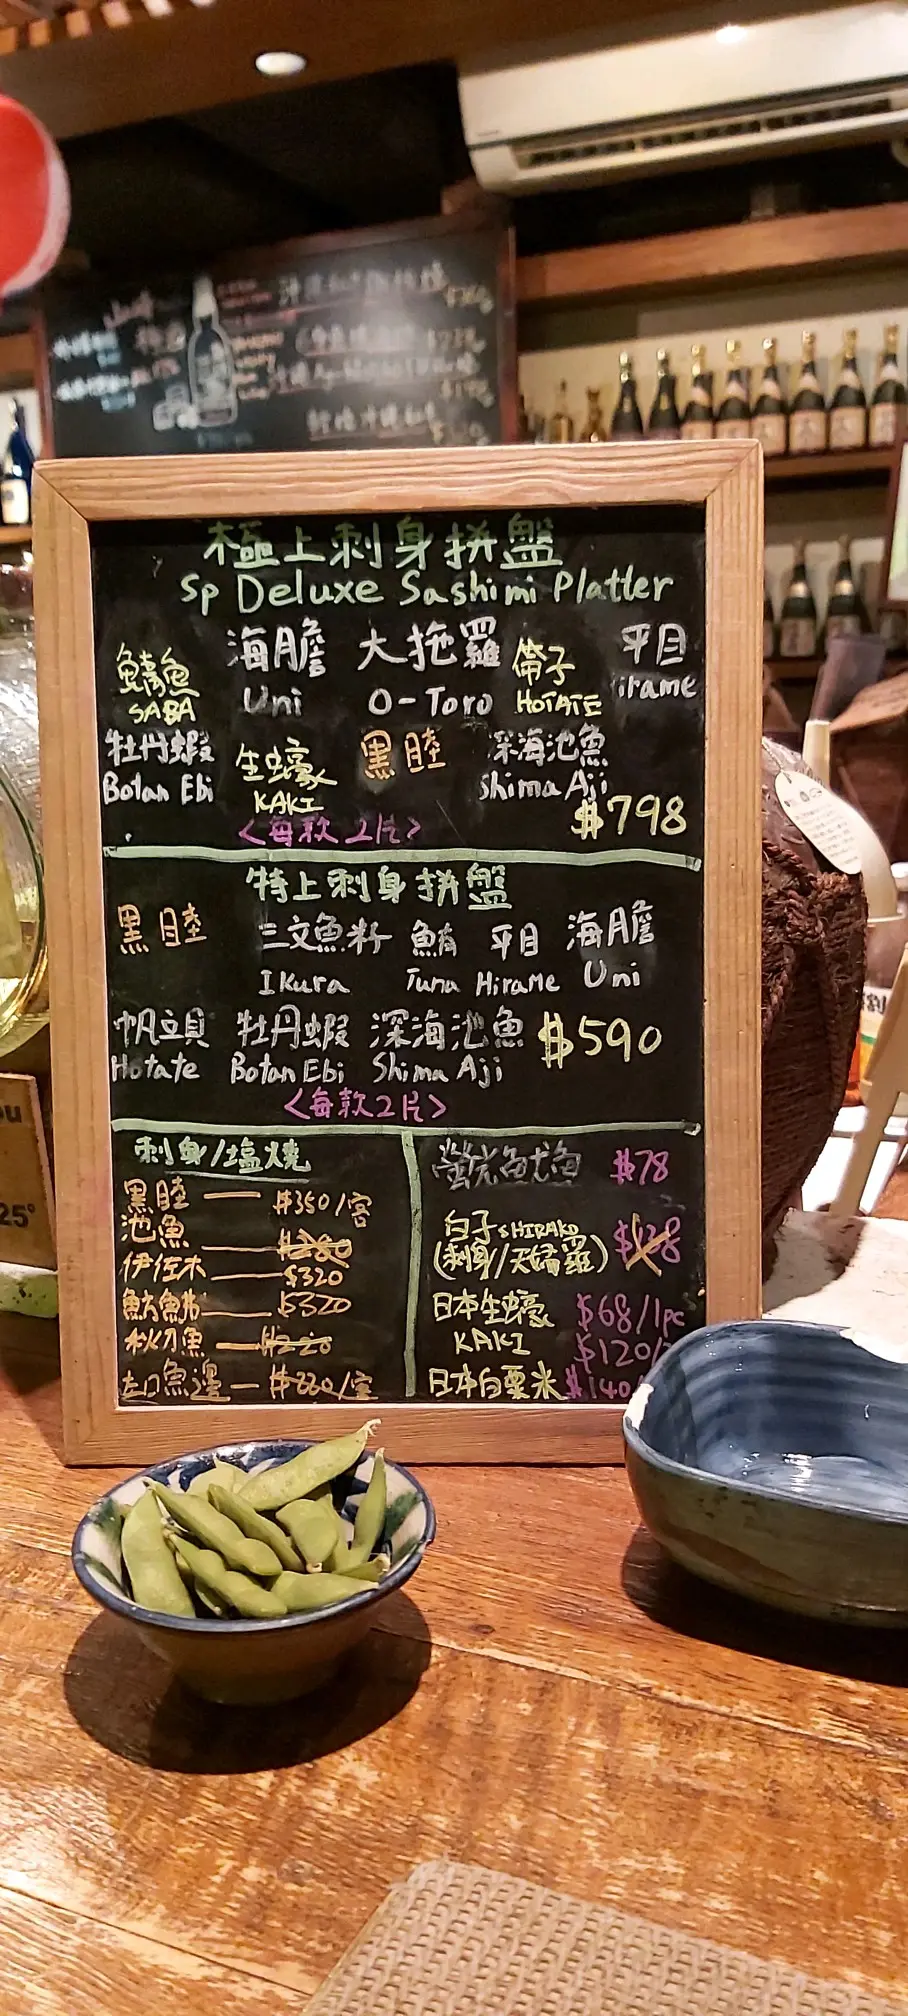 極上刺身拼盤
Sp Deluxe Sashimi Platter
鯖魚 海膽 大拖羅 帶子 平目
SABA Uni O-Toro HOTATE irame
牡丹蝦 生蠔 黑睦 深海池魚
Botan Ebi KAKI Shima Aji
<每款2片> $798
特上刺身拼盤
黑睦 三文魚籽 鮪 平目 海膽
Ikura Tuna Hirame Uni
帆立貝 牡丹蝦 深海池魚 $590
Hotate Botan Ebi Shima Aji
<每款2片>
刺身/塩燒
黑睦 — $350/客
池魚 — $280
伊佐木 — $320
$320
秋刀魚 —
魚邊 —
螢光魷魚 $78
白子 SHIRAKO
(刺身/天婦羅)
日本生蠔 $68/1pc
KAKI $120/
日本白粟米 $140/
25°